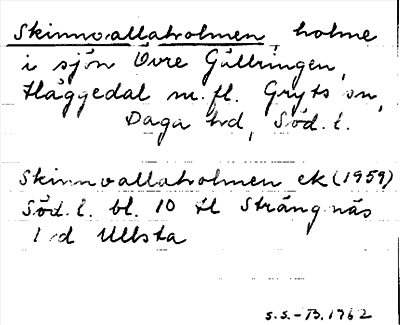 Skinnvallaholmen, holme
i sjön Övre Gällringen,
Häggedal m.fl. Gryts sn,
Daga hd, Söd. l.
Skinnvallaholmen ek (1959)
Söd. l. bl. 10 tl Strängnäs
1 d Ullsta
S.S.-B. 1962